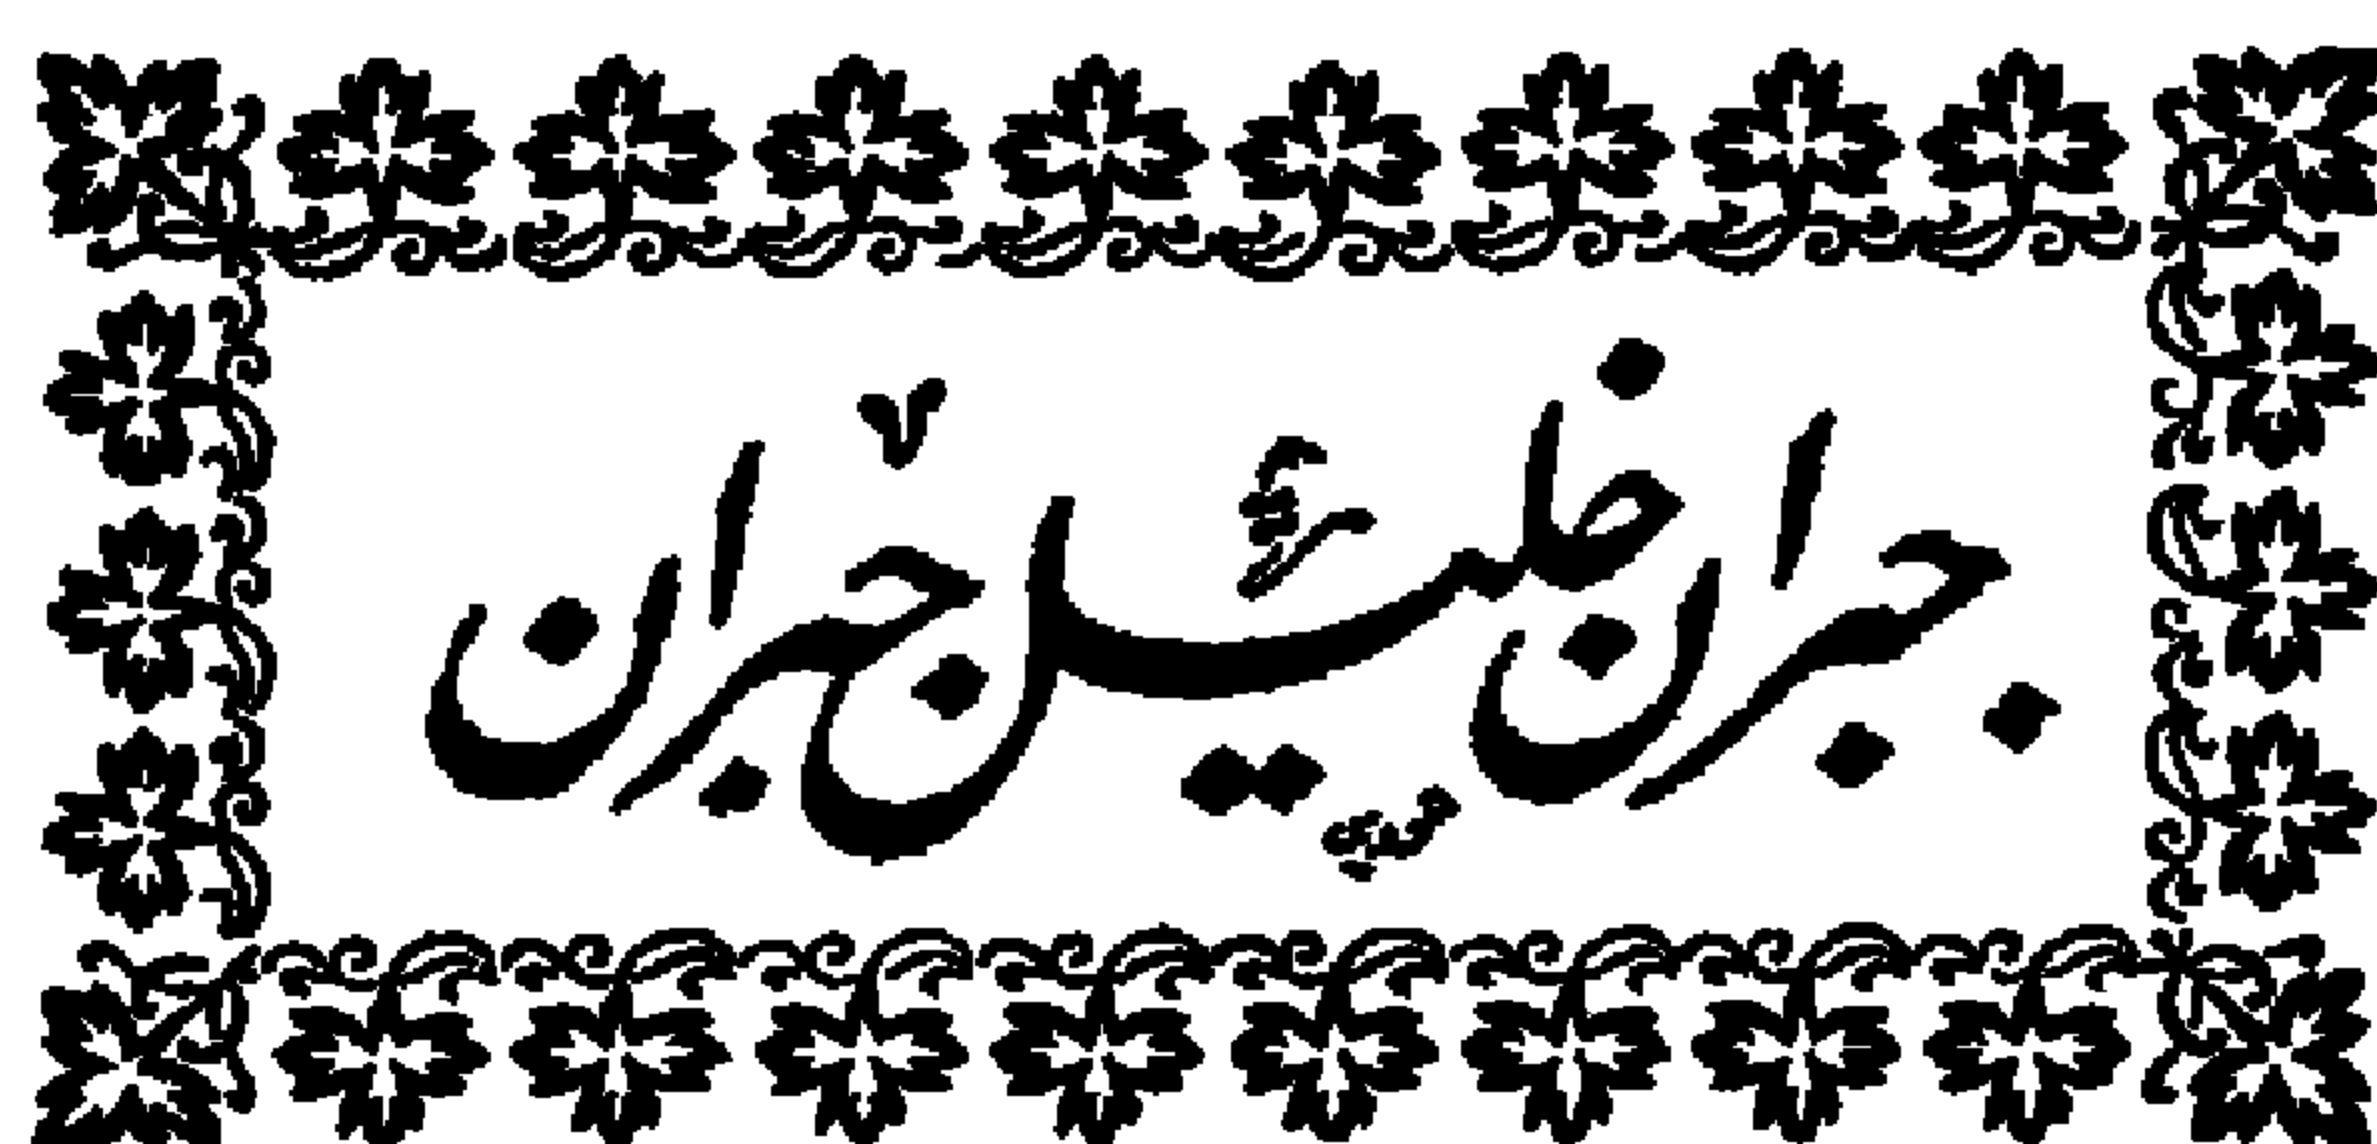 جبران خليل جبران